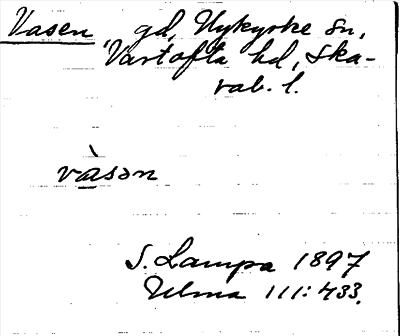 Vasen, gd, Nykyrke sn,
Vartofta hd, Ska-
rab. l.
vàsən
S. Lampa 1897
Ulma 111: 433.